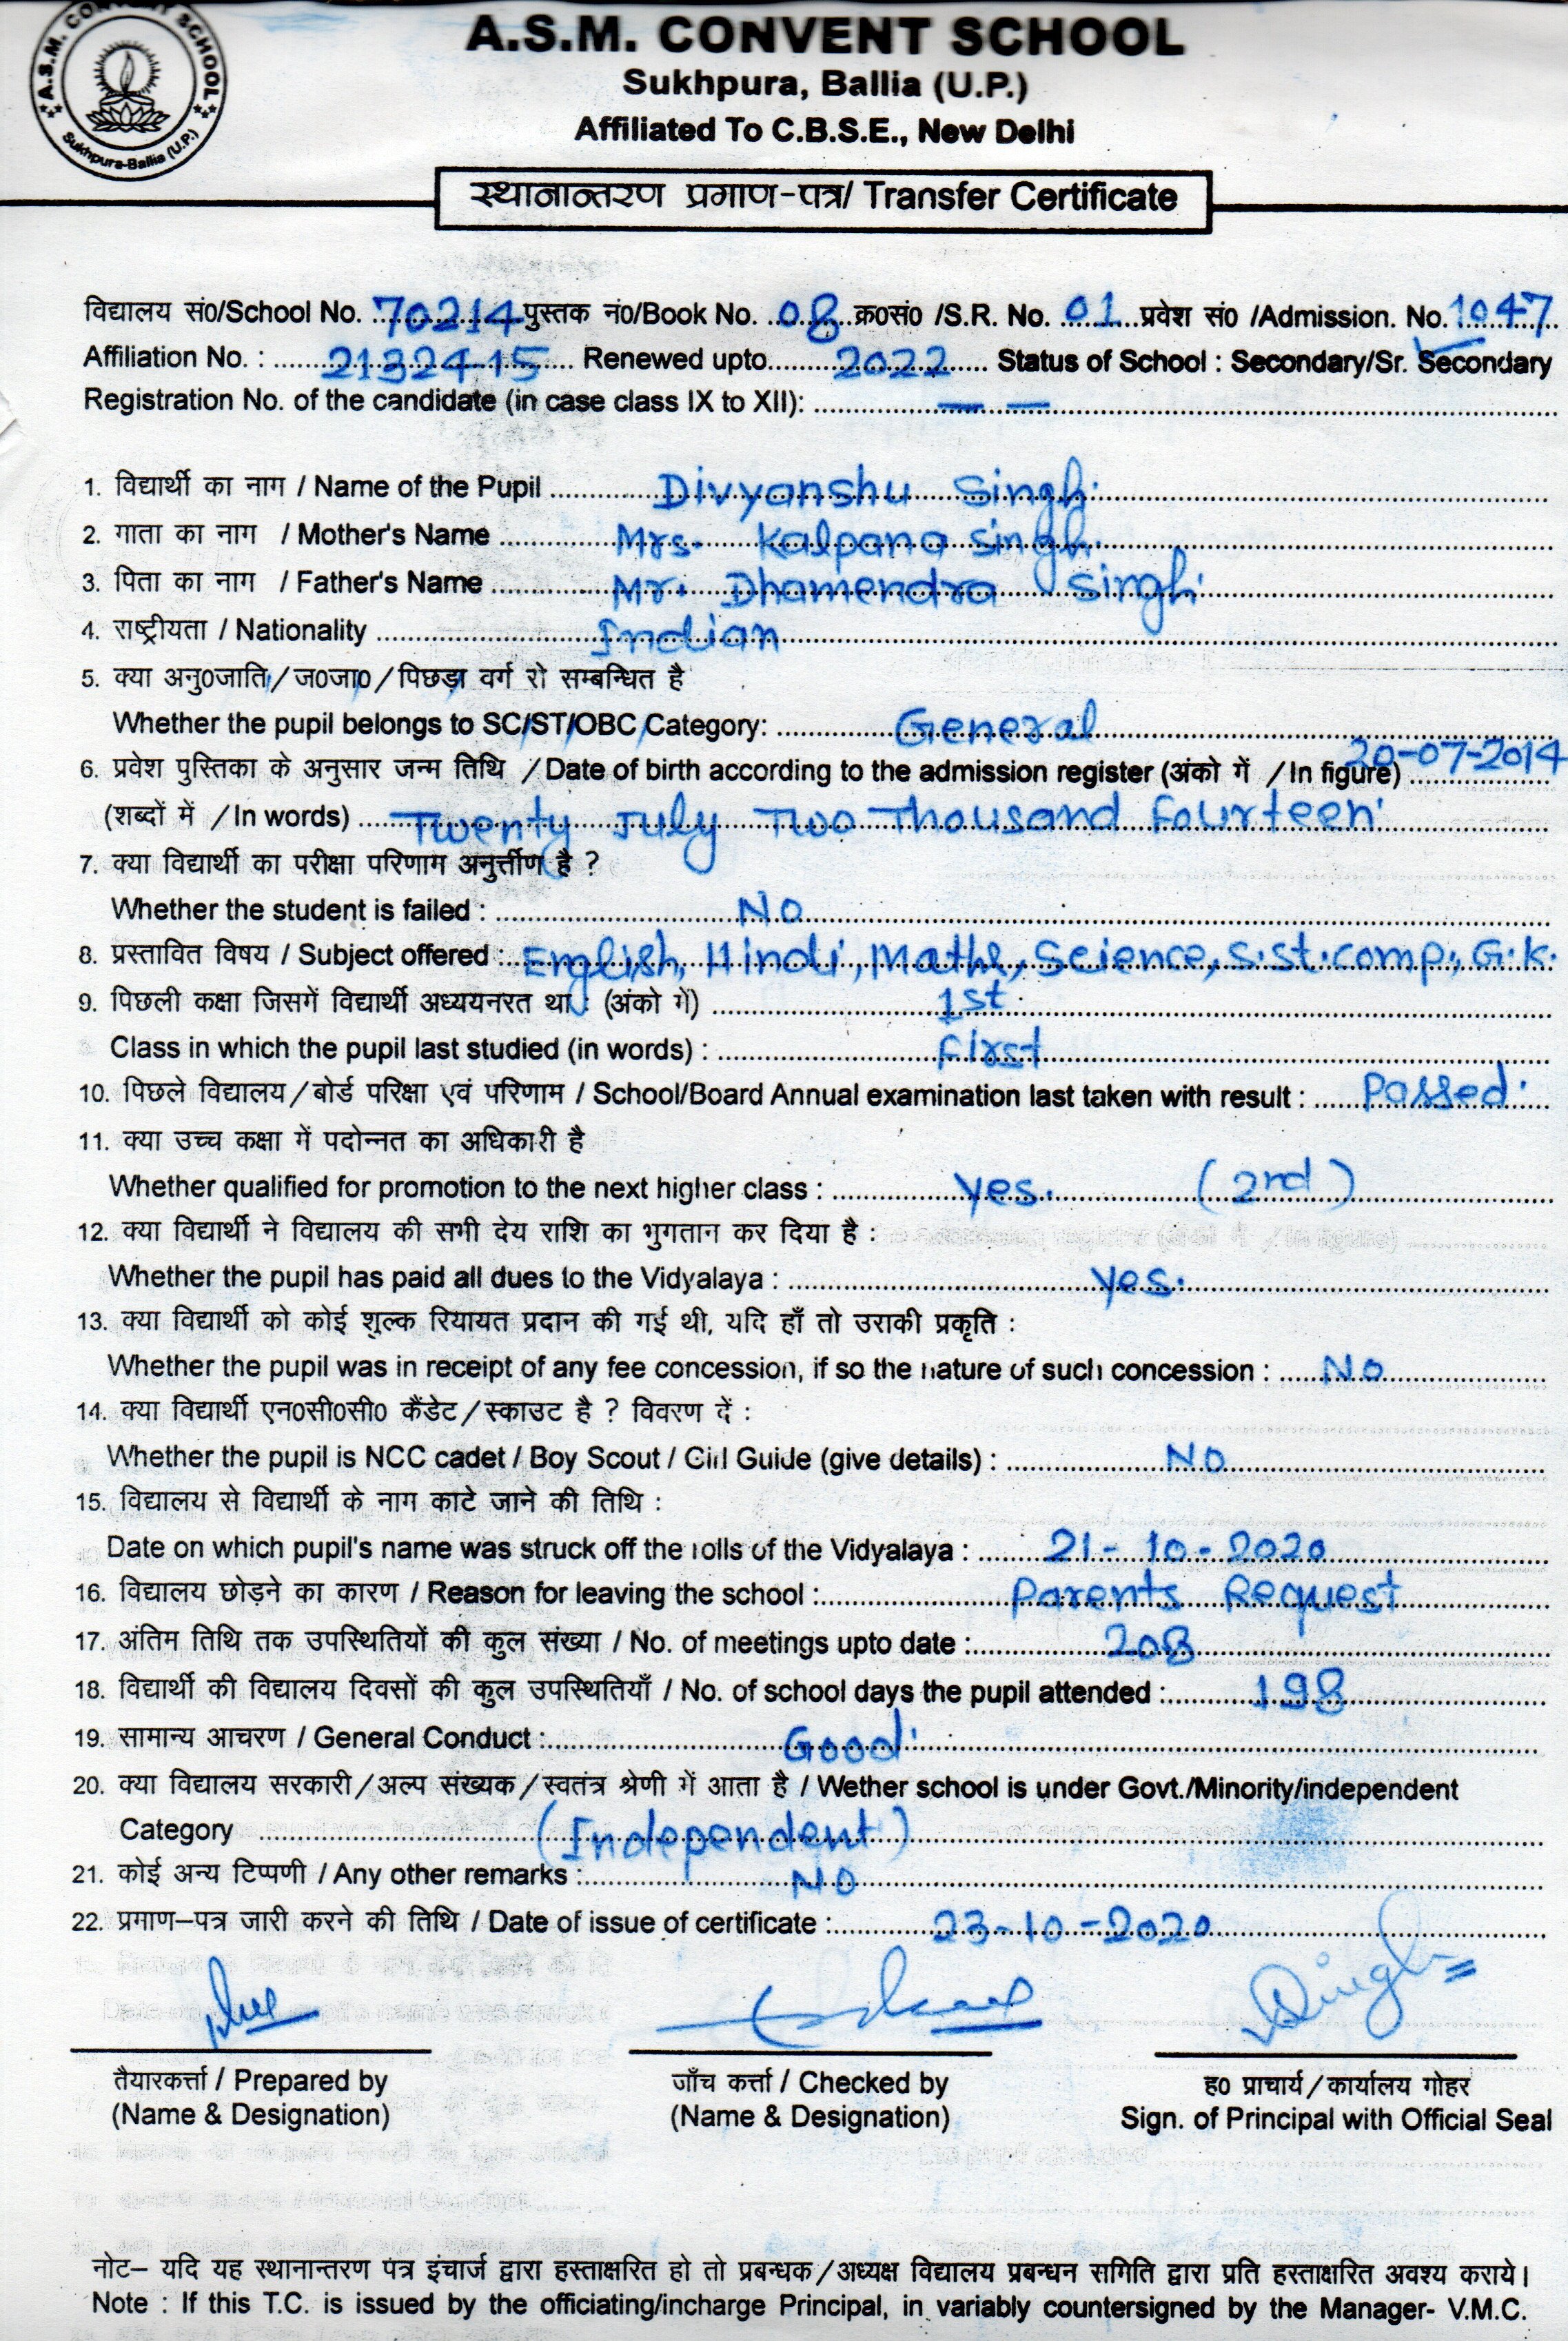 A.S.M. CONVENT SCHOOL
Sukhpura-Ballia (U.P.)
A.S.M. CONVENT SCHOOL
Sukhpura, Ballia (U.P.)
Affiliated To C.B.S.E., New Delhi
स्थानान्तरण प्रमाण-पत्र/ Transfer Certificate
विद्यालय सं0/School No. 70214 पुस्तक नं0/Book No. 08 क्र0सं0 /S.R. No. 01 प्रवेश सं0 /Admission. No. 1047
Affiliation No. : 2132415 Renewed upto 2022 Status of School : Secondary/Sr. Secondary
Registration No. of the candidate (in case class IX to XII): — —
1. विद्यार्थी का नाग / Name of the Pupil Divyanshu Singh
2. गाता का नाग / Mother's Name Mrs. Kalpana Singh
3. पिता का नाग / Father's Name Mr. Dhamendra Singh
4. राष्ट्रीयता / Nationality Indian
5. क्या अनु0जाति/ज0जा0/पिछड़ा वर्ग रो सम्बन्धित है
Whether the pupil belongs to SC/ST/OBC Category: General
6. प्रवेश पुस्तिका के अनुसार जन्म तिथि / Date of birth according to the admission register (अंको गें / In figure) 20-07-2014
(शब्दों में / In words) Twenty July Two Thousand Fourteen
7. क्या विद्यार्थी का परीक्षा परिणाम अनुर्त्तीण है ?
Whether the student is failed : NO
8. प्रस्तावित विषय / Subject offered : English, Hindi, Maths, Science, S.st. comp., G.K.
9. पिछली कक्षा जिसगें विद्यार्थी अध्ययनरत था : (अंको गें) 1st
Class in which the pupil last studied (in words) : First
10. पिछले विद्यालय/बोर्ड परिक्षा एवं परिणाम / School/Board Annual examination last taken with result : Passed
11. क्या उच्च कक्षा में पदोन्नत का अधिकारी है
Whether qualified for promotion to the next higher class : Yes. (2rd)
12. क्या विद्यार्थी ने विद्यालय की सभी देय राशि का भुगतान कर दिया है :
Whether the pupil has paid all dues to the Vidyalaya : Yes.
13. क्या विद्यार्थी को कोई शुल्क रियायत प्रदान की गई थी, यदि हाँ तो उराकी प्रकृति :
Whether the pupil was in receipt of any fee concession, if so the nature of such concession : No
14. क्या विद्यार्थी एन0सी0सी0 कैंडेट/स्काउट है ? विवरण दें :
Whether the pupil is NCC cadet / Boy Scout / Girl Guide (give details) : NO
15. विद्यालय से विद्यार्थी के नाग काटे जाने की तिथि :
Date on which pupil's name was struck off the rolls of the Vidyalaya : 21-10-2020
16. विद्यालय छोड़ने का कारण / Reason for leaving the school : Parents Request
17. अंतिम तिथि तक उपस्थितियों की कुल संख्या / No. of meetings upto date : 208
18. विद्यार्थी की विद्यालय दिवसों की कुल उपस्थितियाँ / No. of school days the pupil attended : 198
19. सामान्य आचरण / General Conduct : Good
20. क्या विद्यालय सरकारी/अल्प संख्यक/स्वतंत्र श्रेणी गें आता है / Wether school is under Govt./Minority/independent
Category (Independent)
21. कोई अन्य टिप्पणी / Any other remarks : NO
22. प्रमाण-पत्र जारी करने की तिथि / Date of issue of certificate : 23-10-2020
Singh
तैयारकर्त्ता / Prepared by
(Name & Designation)
जाँच कर्त्ता / Checked by
(Name & Designation)
ह0 प्राचार्य/कार्यालय गोहर
Sign. of Principal with Official Seal
नोट- यदि यह स्थानान्तरण पत्र इंचार्ज द्वारा हस्ताक्षरित हो तो प्रबन्धक/अध्यक्ष विद्यालय प्रबन्धन सगिति द्वारा प्रति हस्ताक्षरित अवश्य कराये।
Note : If this T.C. is issued by the officiating/incharge Principal, in variably countersigned by the Manager- V.M.C.